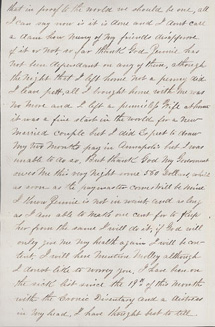 but in proof to the world we should be one, all
I can say now is it is done and I dont care
a damn how many of my friends disapprove
of it or not so far thank God Jennie has
not been dependant on any of them, although
the night that I left home not a penny did
I leave, all I brought home with me was
no more and I left a penniless Wife at home
it was a fine start in the world for a new
married couple but I did expect to draw
my two months pay in Annapolis but I was
unable to do so, But thank God My Government
owes me this very night some $80 dollars while
as soon as the paymaster comes will be mine
I know Jennie is not in want and as long
as I am able to make one cent for to keep
her from the same I will do it; if God will
only give me my health again I will be con-
tent; I will here mention Molley although
I do not like to worry you, I have been on
the sick list since the 19th of this month
with the Chronic Dysentery and a distress
in my head, I have thought but to tell